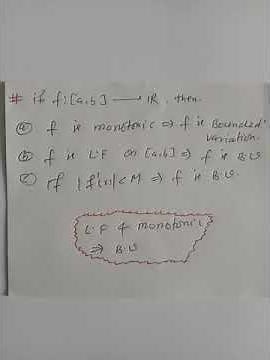 # if f:[a,b] → IR, then.
ⓐ f is monotonic ⇒ f is Bounded
variation.
ⓑ f is L.F on [a,b] ⇒ f is B.V.
ⓒ If |f'(x)|<M ⇒ f is B.V.
L.F & monotonic
⇒ B.V